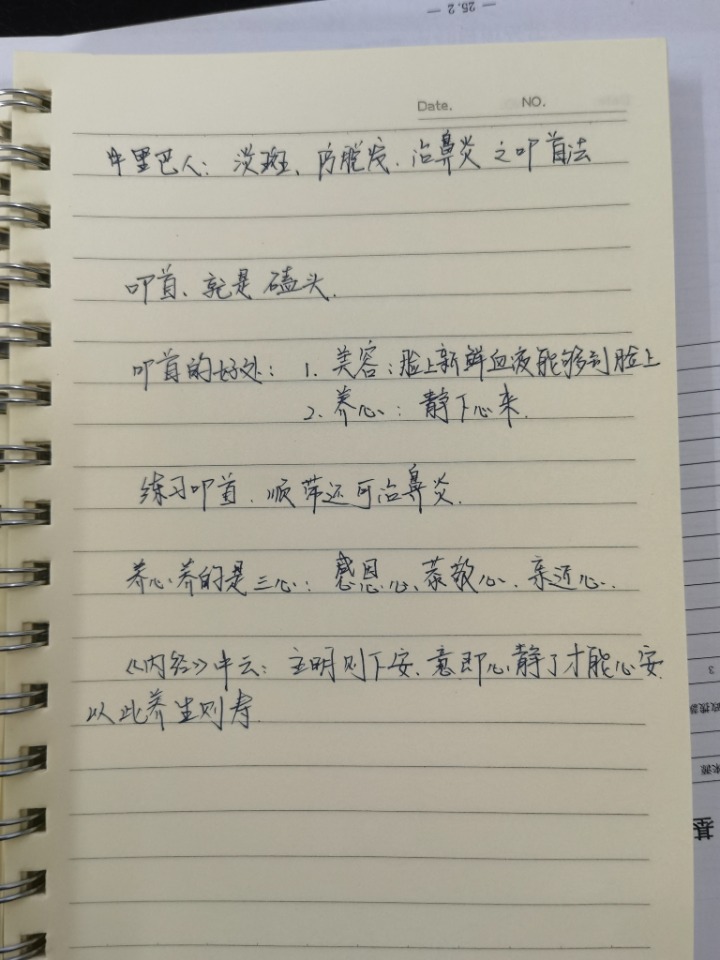 — 25.2 —
Date. NO.
中里巴人：淡斑、防脱发、治鼻炎之叩首法
叩首、就是磕头.
叩首的好处：1. 美容：脸上新鲜血液能够到脸上
2. 养心：静下心来.
练习叩首.顺带还可治鼻炎.
养心、养的是三心：感恩心、恭敬心、亲近心.
《内经》中云：主明则下安、意即心静了才能心安
以此养生则寿.
3
来源
基